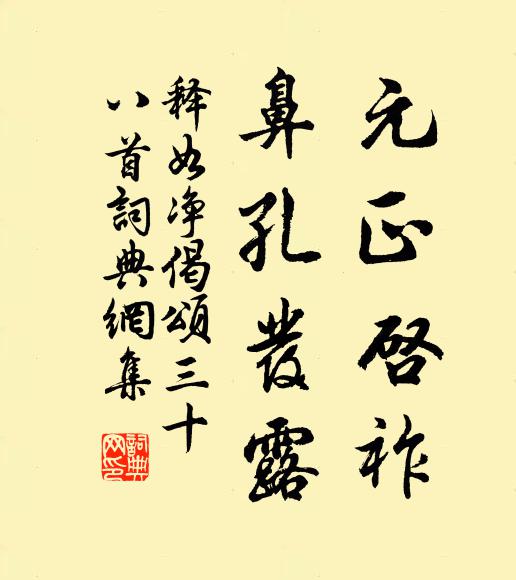 元正启祚
鼻孔發露
释如净偈頌三十
八首詞典網集
詞典网印